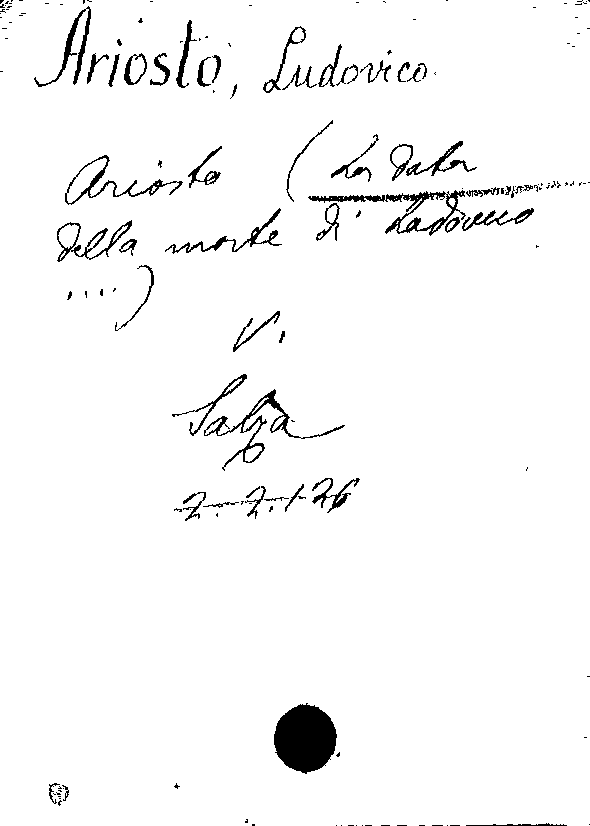 Ariosto, Ludovico
Ariosto (La data
della morte di Ludovico
....)
V.
Salza
Z. Z. 126